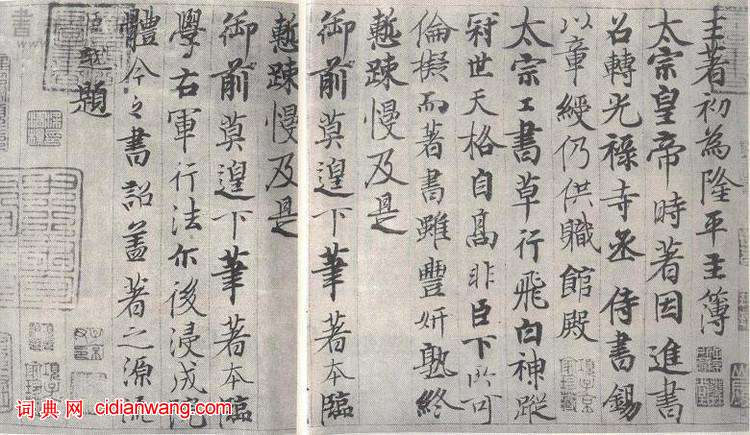 王著初為隆平主簿
太宗皇帝時著因進書
召轉光祿寺丞侍書錫
以章綬仍供職館殿
太宗工書草行飛白神蹤
冠世天格自高非臣下所可
倫擬而著書雖豐妍熟終
慙疎慢及是
御前莫遑下筆著本臨
慙疎慢及是
御前莫遑下筆著本臨
學右軍行法尔後浸成院
體今之書詔蓋著之源流
越題
词典网 cidianwang.com